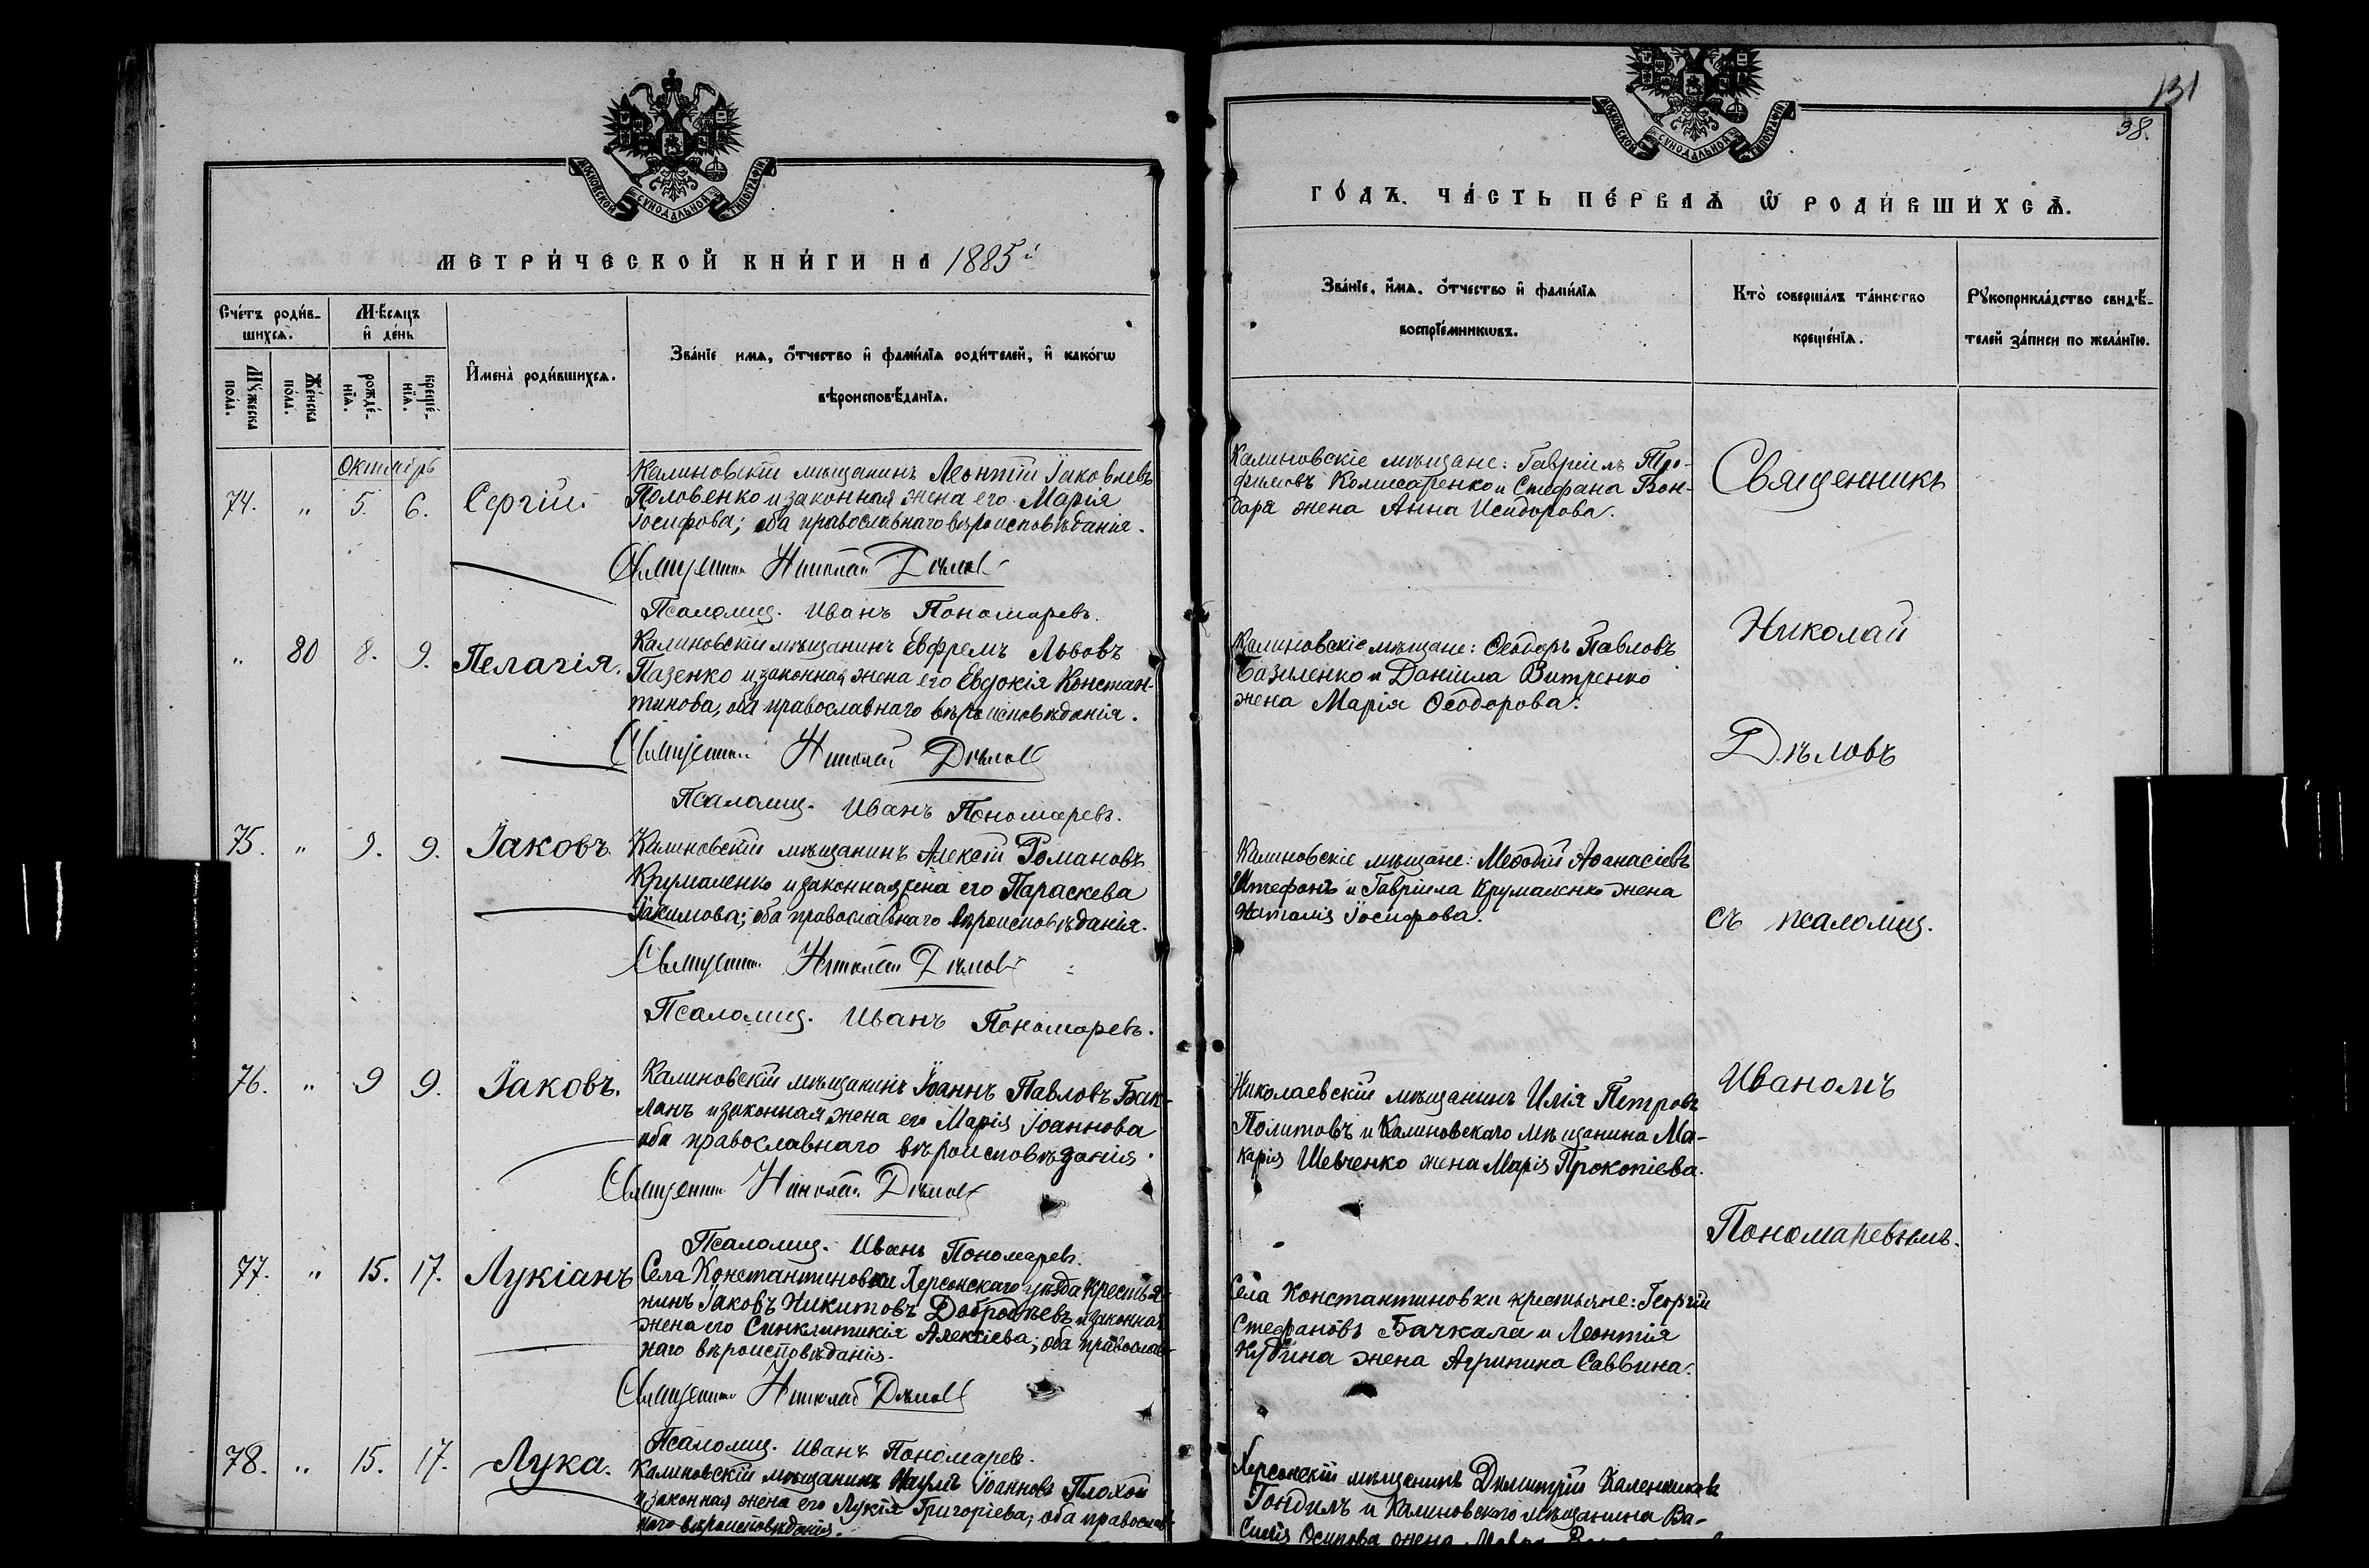 МОСКОВСКОЙ СѴНОДАЛЬНОЙ ТИПОГРАФІИ
МЕТРИ́ЧЕСКОЙ КНИ́ГИ НА 1885й
Сче́тъ роди́в-
шихсѧ.
Мѣ́сѧцъ
и҆ де́нь
Мꙋ́жеска
по́ла.
Же́нска
по́ла.
рожде́-
нїѧ.
креще́-
нїѧ.
И҆мена̀ роди́вшихсѧ.
Зва́нїе имѧ, ѻ҆́тчество и҆ фамѝлїѧ роди́телей, и҆ како́гѡ
вѣроисповѣ́данїѧ.
Октябрь
74. " 5. 6. Сергій.
Калиновскій мѣщанинъ Леонтій Іаковлевъ
Половенко и законная жена его Марія
Іосифова; оба православнаго вѣроисповѣданія.
Священникъ Николай Дѣловъ
Псаломщ. Иванъ Пономаревъ.
" 80 8. 9. Пелагія.
Калиновскій мѣщанинъ Евфремъ Львовъ
Пазенко и законная жена его Евдокія Констан-
тинова, оба православнаго вѣроисповѣданія.
Священникъ Николай Дѣловъ
Псаломщ. Иванъ Пономаревъ.
75. " 9. 9. Іаковъ.
Калиновскій мѣщанинъ Алексій Романовъ
Крумаленко и законная жена его Параскева
Іакимова; оба православнаго вѣроисповѣданія.
Священникъ Николай Дѣловъ
Псаломщ. Иванъ Пономаревъ.
76. " 9 9. Іаковъ.
Калиновскій мѣщанинъ Іоаннъ Павловъ Бак-
ланъ и законная жена его Марія Іоаннова
оба православнаго вѣроисповѣданія.
Священникъ Николай Дѣловъ
Псаломщ. Иванъ Пономаревъ.
77. " 15. 17. Лукіанъ
Села Константиновки Херсонскаго уѣзда крестья-
нинъ Іаковъ Никитовъ и законная
жена его Синклитикія Алексіева; оба православ-
наго вѣроисповѣданія.
Священникъ Николай Дѣловъ
Псаломщ. Иванъ Пономаревъ.
78. " 15. 17. Лука.
Калиновскій мѣщанинъ Наумъ Іоанновъ Плохой
и законная жена его Лукія Григоріева; оба православ-
наго вѣроисповѣданія.
131
38.
МОСКОВСКОЙ СѴНОДАЛЬНОЙ ТИПОГРАФІИ
ГО́ДЪ. ЧА́СТЬ ПЕ́РВАѦ Ѽ РОДИ́ВШИХСѦ.
Зва́нїе, и҆́мѧ, ѻ҆́тчество и҆ фамѝлїѧ
воспрїе́мникѡвъ.
Кто̀ соверша́лъ та́инство
креще́нїѧ.
Рꙋкоприкла́дство свидѣ́-
телей за́писи по жела́нїю.
Калиновскіе мѣщане: Гавріилъ Тро-
фимовъ Комисаренко и Стефана Бон-
даря жена Анна Исидорова.
Калиновскіе мѣщане: Ѳеодоръ Павловъ
Базиленко и Даніила Витренко
жена Марія Ѳеодорова.
Калиновскіе мѣщане: Меѳодій Аѳанасіевъ
Штефанъ и Гавріила Крумаленко жена
Наталія Іосифова.
Николаевскій мѣщанинъ Илія Петровъ
Политовъ и Калиновскаго мѣщанина Ма-
карія Шевченко жена Марія Прокопіева.
Села Константиновки крестьяне: Георгій
Стефановъ Бачкала и Леонтія
Кубина жена Агрипина Саввина.
Херсонскій мѣщанинъ Димитрій
Гондилъ и Калиновскаго мѣщанина Ва-
силія Осипова жена
Священникъ
Николай
Дѣловъ
съ псаломщ.
Иваномъ
Пономаревымъ.